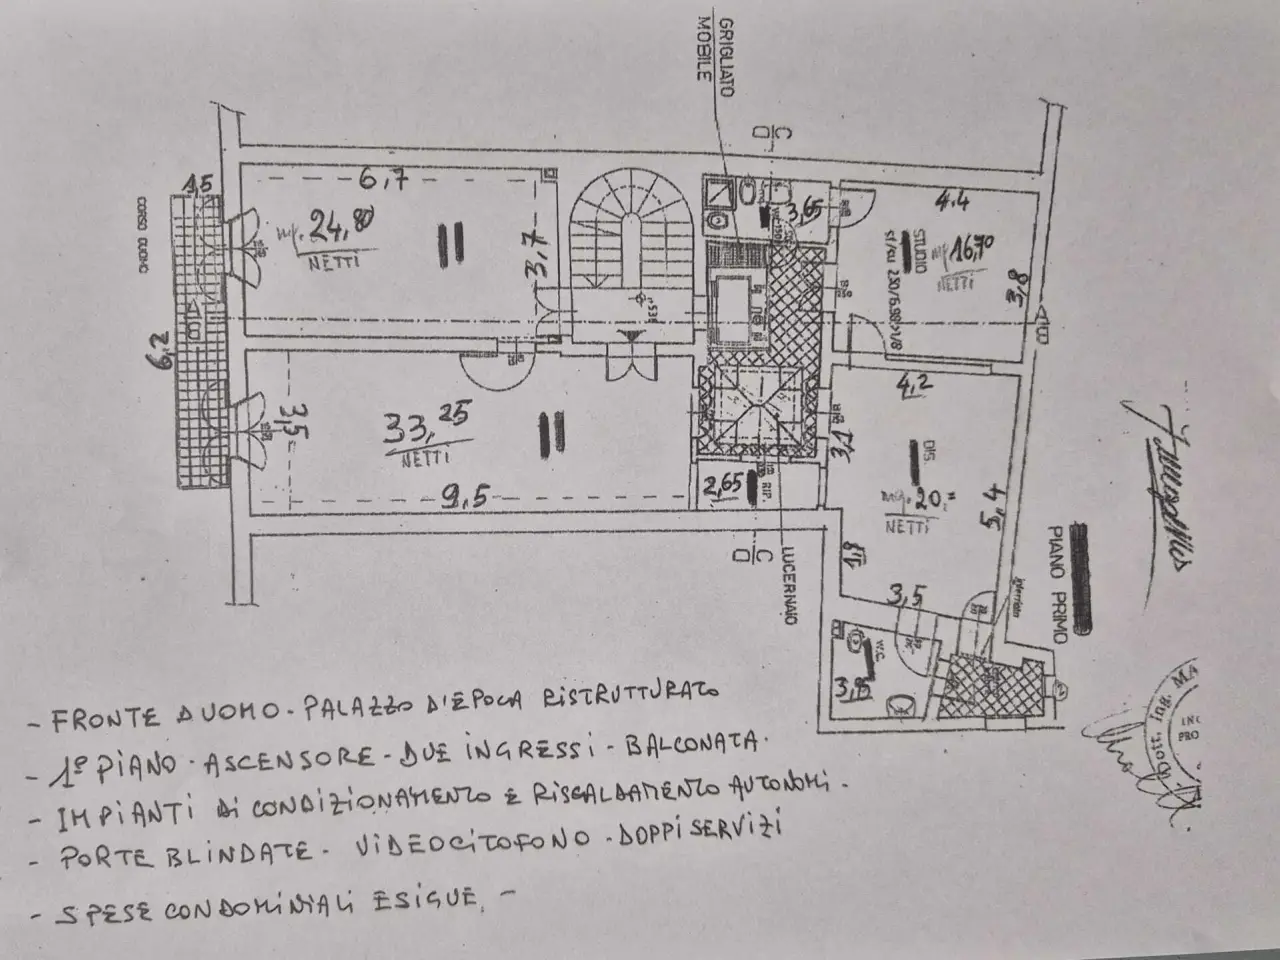 GRIGLIATO
MOBILE
C
D
1,5
6,7
CORSO DUOMO
mq. 24,80
NETTI
3,7
3,65
4.4
STUDIO
mq 16,70
NETTI
3,8
6,2
3,5
33,25
NETTI
9,5
4,2
3,1
2,65
RIP.
DIS.
mq. 20,=
NETTI
5,4
C
D
LUCERNAIO
1,8
3,5
W.C.
3,95
PIANO PRIMO
Dott. ing. MA
INC
PRO
- FRONTE DUOMO - PALAZZO D'EPOCA RISTRUTTURATO
- 1º PIANO - ASCENSORE - DUE INGRESSI - BALCONATA.
- IMPIANTI DI CONDIZIONAMENTO E RISCALDAMENTO AUTONOMI.
- PORTE BLINDATE - VIDEOCITOFONO - DOPPI SERVIZI
- SPESE CONDOMINIALI ESIGUE. -